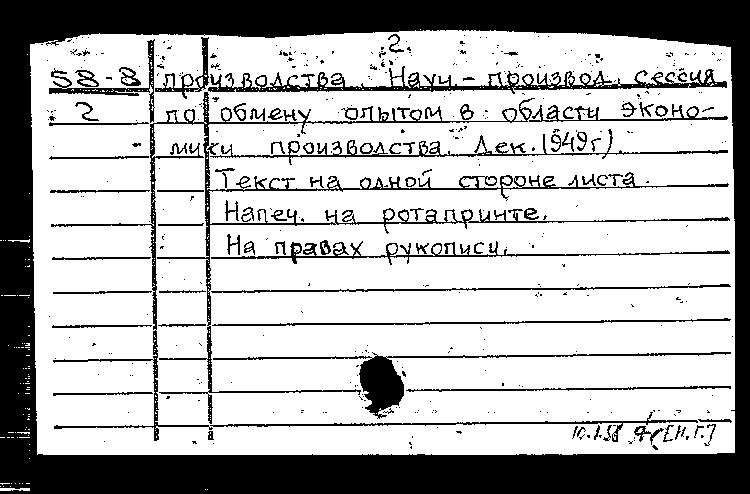 2.
58-8 производства. Науч.-произвол. сессия
2 по обмену опытом в области эконо-
мики производства. Дек. 1949г).
Текст на одной стороне листа.
Напеч. на ротапринте.
На правах рукописи.
10.1.58 [Н.Г.]